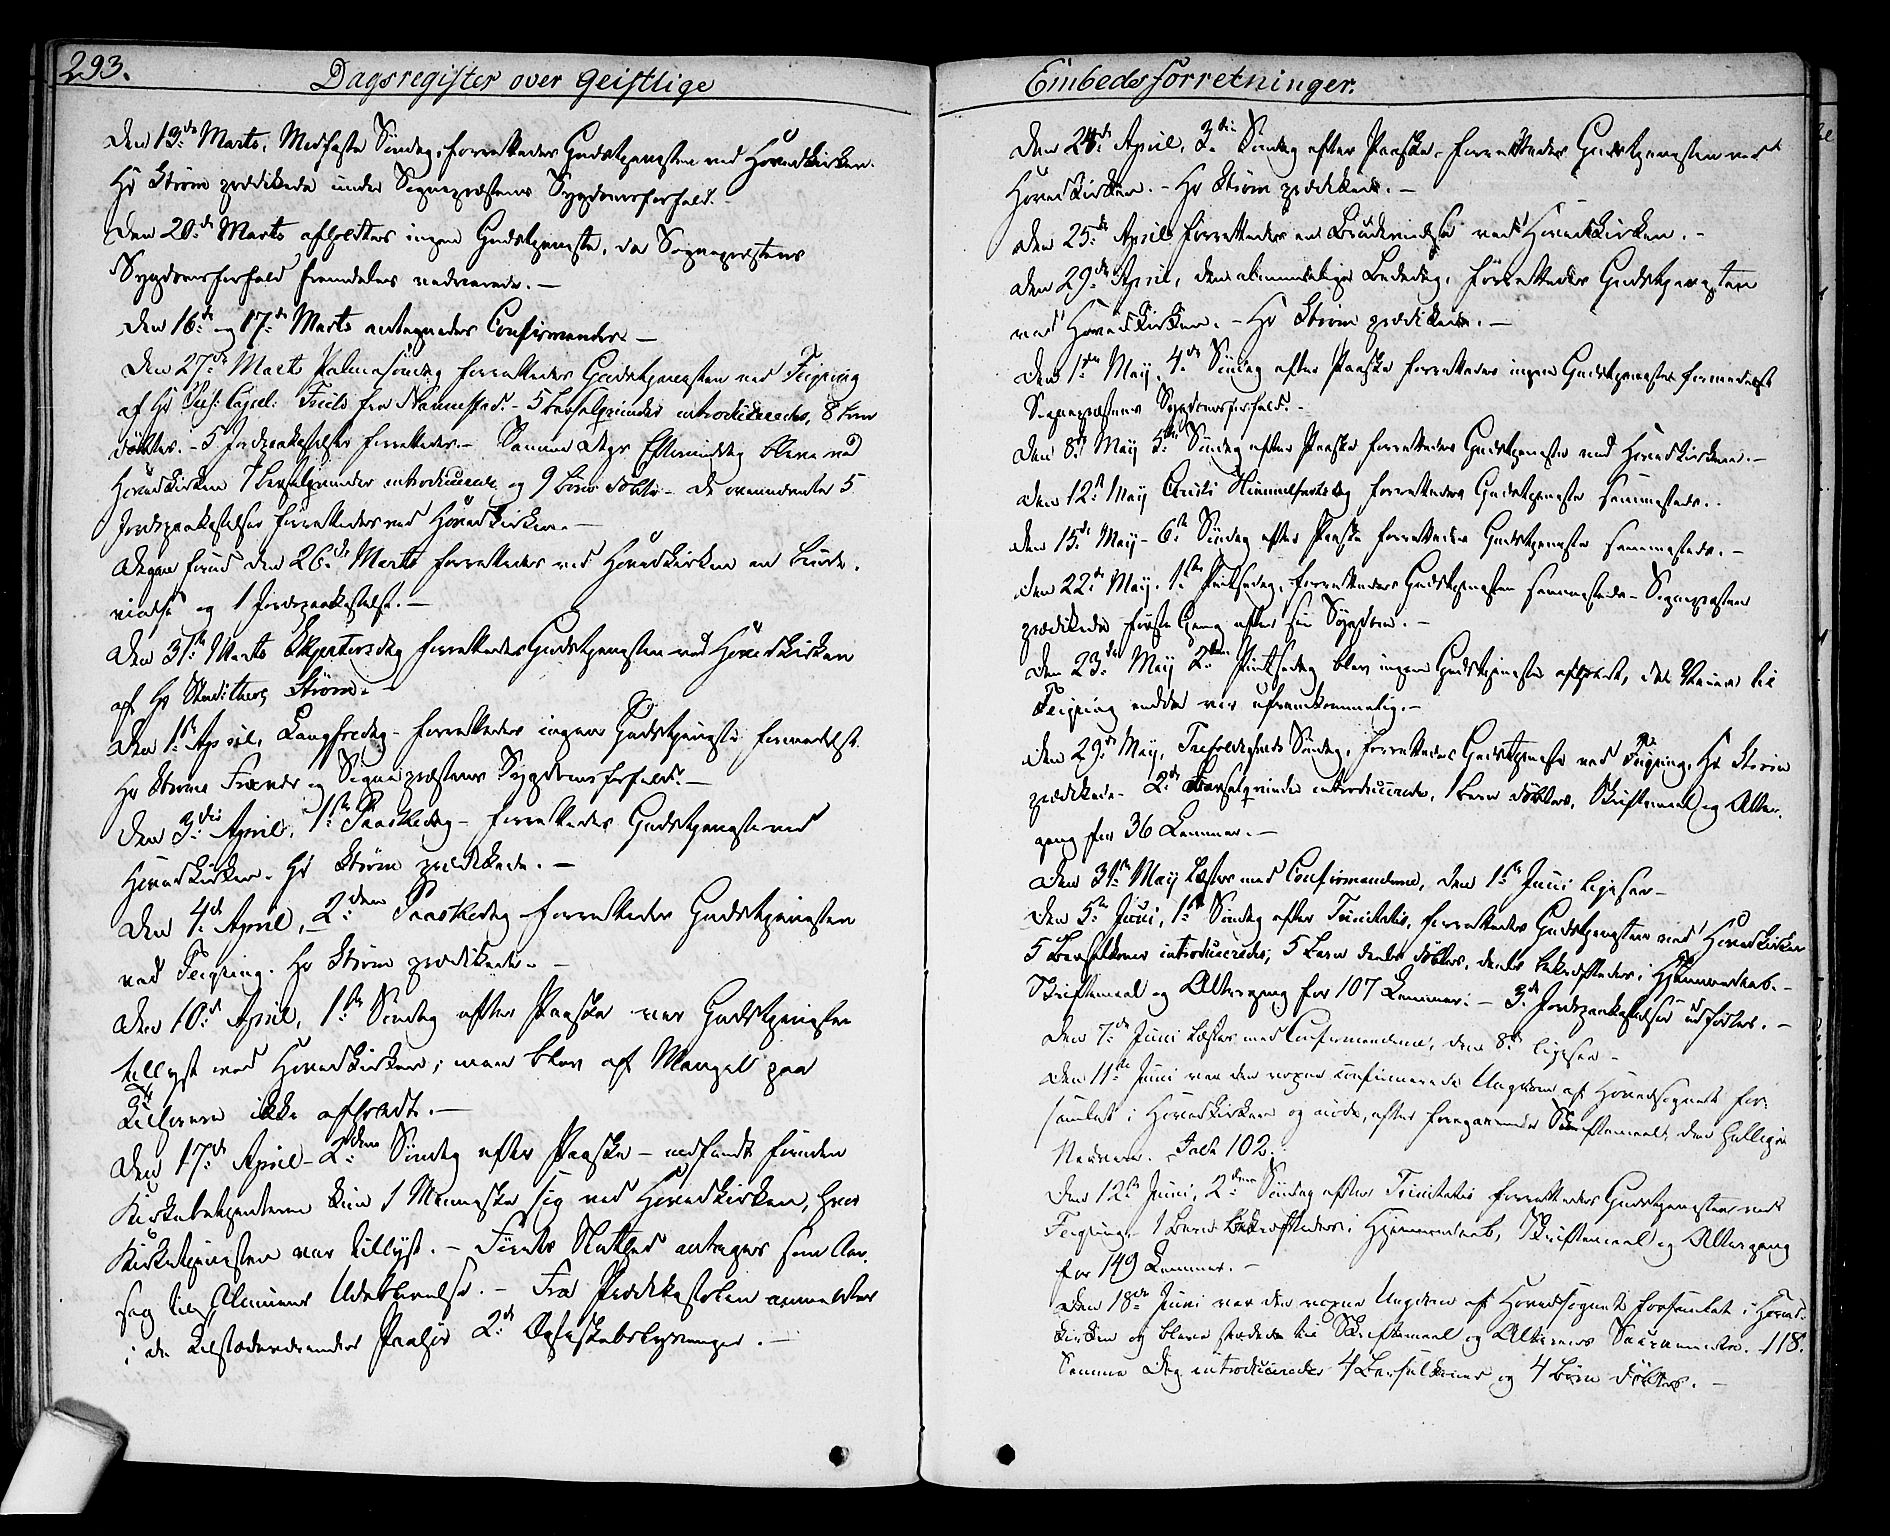 293.
Dagsregister over Geistlige
Den 13de Marts, Midfaste Søndag, forrettedes Gudstjenesten ved Hovedkirken.
Hr Strøm prædikede under Sognepræstens Sygdomsforfald.
Den 20de Marts afholdtes ingen Gudstjeneste, da Sognepræstens
Sygdomsforfald fremdeles vedvarede. —
Den 16de og 17de Marts antegnedes Confirmander. —
Den 27de Marts Palmesøndag forrettedes Gudstjenesten ved Feiring
af Hr Capel: fra Nannestad. - 5 Barselqvinder introduceredes, 8 Børn
døbtes. - 5 Jordpaakastelser forrettedes. - Samme Dags Eftermiddag bleve ved
Hovedkirken 7 Barselqvinder introducerede og 9 Børn døbte - De ovennævnte 5
Jordpaakastelser forrettedes ved Hovedkirken. —
Dagen forud den 26de Marts forrettedes ved Hovedkirken en Brude-
vielse og 1 Jordpaakastelse. —
Den 31te Marts Skjærtorsdag forrettedes Gudstjenesten ved Hovedkirken
af Hr Strøm. -
Den 1ste April, Langfredag - forrettedes ingen Gudstjeneste formedelst
Hr Strøms og Sognepræstens Sygdomsforfald. —
Den 3die April, 1ste Paaskedag - forrettedes Gudstjeneste ved
Hovedkirken. Hr Strøm prædikede. —
Den 4de April, 2den Paaskedag forrettedes Gudstjenesten
ved Feiring. Hr Strøm prædikede. —
Den 10de April, 1ste Søndag efter Paaske var Gudstjenesten
tillyst ved Hovedkirken; men blev af Mangel paa
Tilhørere ikke afholdt. —
Den 17de April - 2den Søndag efter Paaske - indfandt foruden
Kirkebetjenterne kun 1 Menneske sig ved Hovedkirken, hvor
Kirketjenesten var tillyst. - Føret antages som Aar-
sag til Udeblivelse. - Fra Prædikestolen anmeldtes
i de Paahør 2de Ægteskabslysninger. —
Embedsforretninger.
Den 24de April, 3die Søndag efter Paaske, forrettedes Gudstjenesten ved
Hovedkirken. - Hr Strøm prædikede. —
Den 25de April forrettedes en Brudevielse ved Hovedkirken. -
Den 29de April, den almindelige Bededag, forrettedes Gudstjenesten
ved Hovedkirken. - Hr Strøm prædikede. —
Den 1ste May, 4de Søndag efter Paaske forrettedes ingen Gudstjeneste formedelst
Sognepræstens Sygdomsforfald. -
Den 8de May 5te Søndag efter Paaske forrettedes Gudstjeneste ved Hovedkirken. —
Den 12te May Christi Himmelfartsdag forrettedes Gudstjeneste sammesteds.
Den 15de May - 6te Søndag efter Paaske forrettedes Gudstjeneste sammesteds. —
Den 22de May, 1ste Pintsedag, forrettedes Gudstjenesten sammesteds - Sognepræsten
prædikede første Gang efter sin Sygdom. —
Den 23de May 2den Pintsedag blev ingen Gudstjeneste afholdt, da Veien til
Feiring endda var ufremkommelig. —
Den 29de May, Trefoldigheds Søndag, forrettedes Gudstjeneste ved Feiring. Hr Strøm
prædikede - 2de Barselqvinder introducerede, 1 Barn døbtes, Skriftemaal og Alter-
gang for 36 Lemmer. —
Den 31te May læstes med Confirmanderne, den 1ste Juni ligesaa -
Den 5te Juni, 1ste Søndag efter Trinitatis, forrettedes Gudstjenesten ved Hovedkirken
5 Barselkoner introduceredes, 5 Børn deels døbtes, deels bekræftedes i Hjemmedaab. -
Skriftemaal og Altergang for 107 Lemmer. - 3de Jordpaakastelser udførtes. —
Den 7de Juni læstes med Confirmanderne, den 8de ligesaa -
Den 11te Juni var den confirmerede Ungdom af Hovedsognet for-
samlet i Hovedkirken og nøde, efter foregaaende Skriftemaal, den hellige
Nadvere. Talt 102.
Den 12te Juni, 2den Søndag efter Trinitatis forrettedes Gudstjenesten ved
Feiring. 1 Barn bekræftedes i Hjemmedaab, Skriftemaal og Altergang
for 149 Lemmer. —
Den 18de Juni var den Ungdom af Hovedsognet forsamlet i Hoved-
kirken og bleve stedede til Skriftemaal og Alterens Sacramente. 118.
Samme Dag introduceredes 4 Barselkoner og 4 Børn døbtes. —